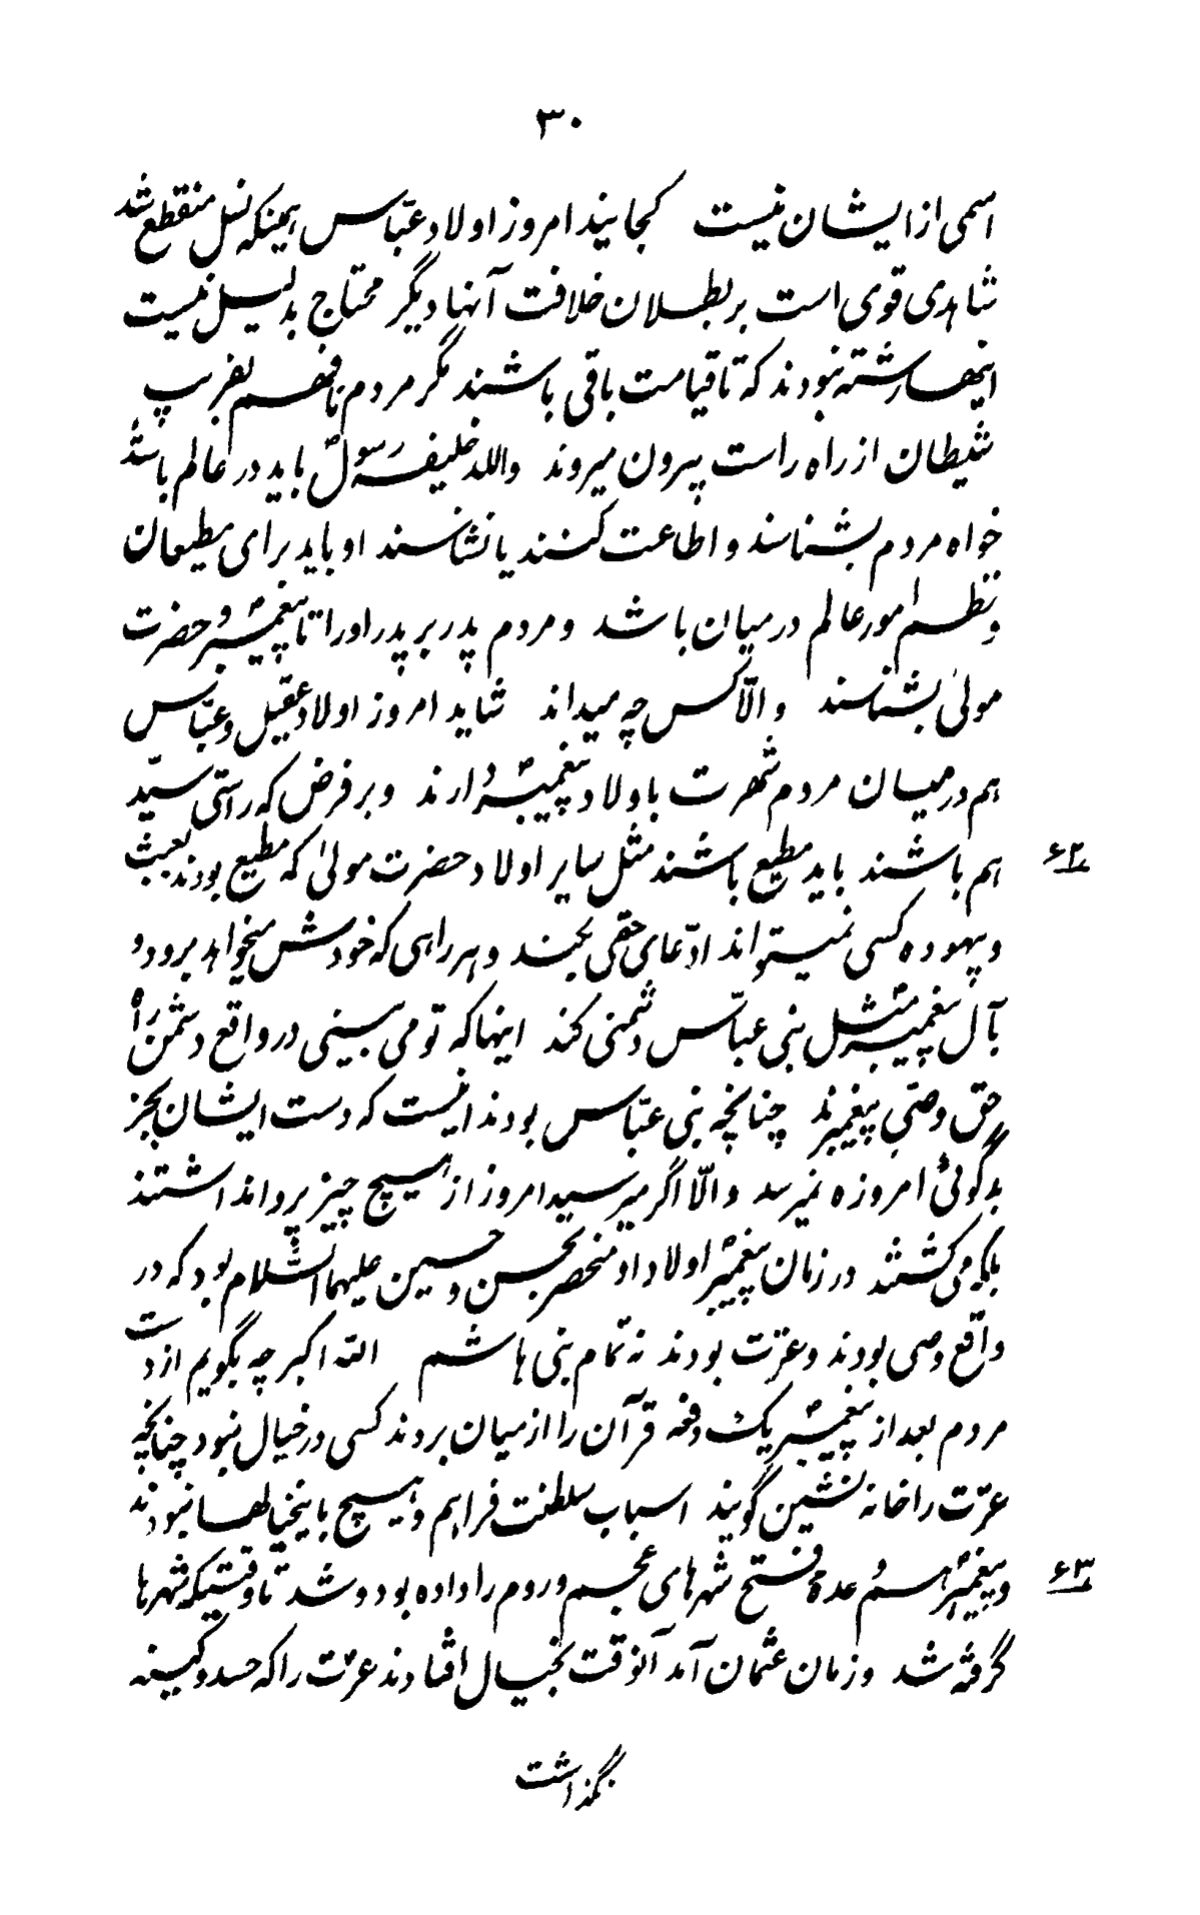 ۳۰
اسمی از ایشان نیست کجایند امروز اولاد عبّاس همینکه نسل منقطع شد
شاهدی قوی است بر بطلان خلافت آنها دیگر محتاج بدلیل نیست
اینها رشته نبودند که تا قیامت باقی باشند مگر مردم نافهم بفریب
شیطان از راه راست بیرون میروند والله خلیفه رسولؐ باید در عالم باشد
خواه مردم بشناسند و اطاعت کنند یا نشناسند او باید برای مطیعان
و نظم امور عالم در میان باشد و مردم پدر بر پدر او را تا پیغمبرؐ و حضرت
مولیٰ بشناسند و الّا کس چه میداند شاید امروز اولاد عقیل و عبّاس
هم در میان مردم شهرت باولاد پیغمبرؐ دارند و بر فرض که راستی سیّد
هم باشند باید مطیع باشند مثل سایر اولاد حضرت مولیٰ که مطیع بودند بعبث ۶۲
و بیهوده کسی نمیتواند ادّعای حقی بکند و هر راهی که خودش میخواهد برود و
با آل پیغمبرؐ مثل بنی عبّاس دشمنی کند اینها که تو می بینی در واقع دشمن راه
حق و وصّی پیغمبرند چنانچه بنی عبّاس بودند اینست که دست ایشان بجز
بدگوئی امروزه نمیرسد و الّا اگر میرسید امروز از هیچ چیز پروا نداشتند
بلکه می کشتند در زمان پیغمبرؐ اولاد او منحصر بحسن و حسین علیهما السّلام بود که در
واقع وصی بودند و عترت بودند نه تمام بنی هاشم الله اکبر چه بگویم از دست
مردم بعد از پیغمبرؐ یک دفعه قرآن را از میان بردند کسی در خیال نبود چنانچه
عترت را خانه نشین گویند اسباب سلطنت فراهم و هیچ باینخیالها نبودند
و پیغمبرؐ هم وعده فتح شهرهای عجم و روم را داده بود و شد تا وقتیکه شهرها ۶۳
گرفته شد و زمان عثمان آمد آنوقت بخیال افتادند عترت را که حسد و کینه
نگذاشت